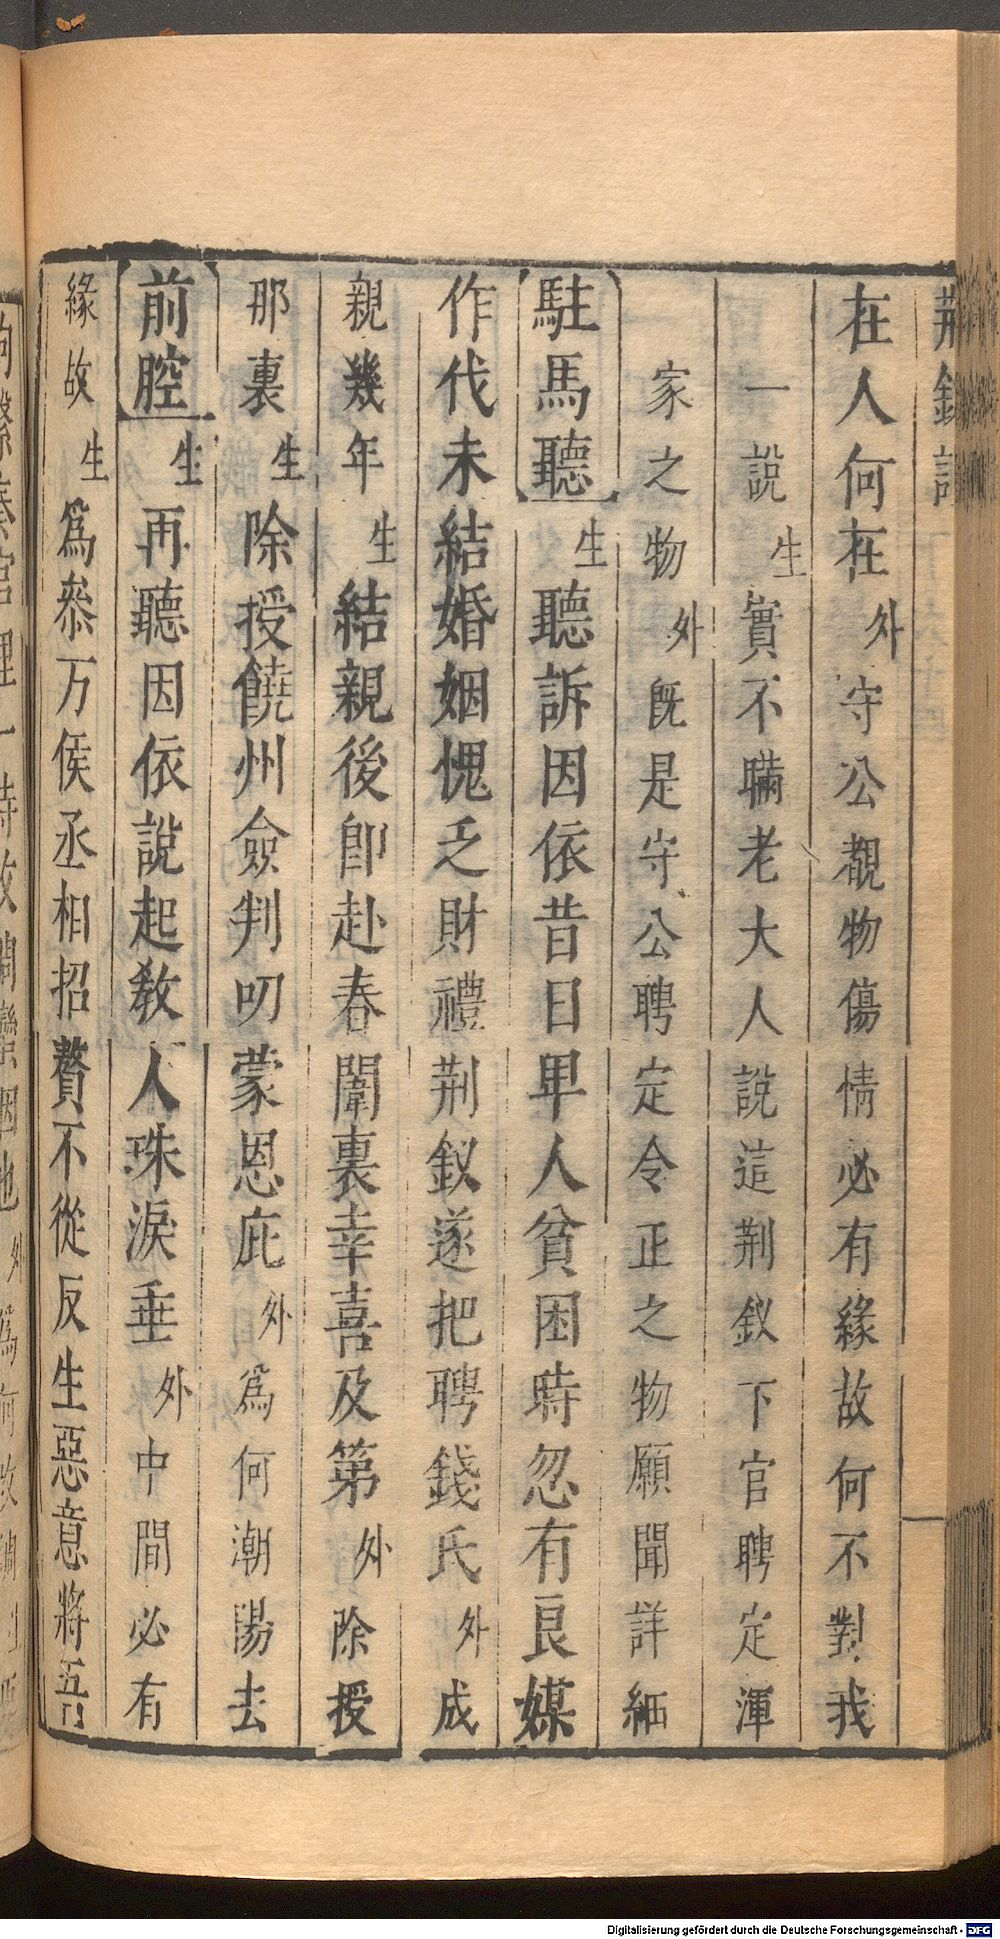 荆釵記
在人何在外守公覩物傷情必有緣故何不對我
一說生實不瞞老大人說這荆釵下官聘定渾
家之物外旣是守公聘定令正之物願聞詳細
駐馬聽生聽訴因依昔日卑人貧困時忽有良媒
作伐未結婚姻愧乏財禮荆釵遂把聘錢氏外成
親幾年生結親後卽赴春闈裏幸喜及第外除授
那裏生除授饒州僉判叨蒙恩庇外爲何潮陽去
前腔生再聽因依說起教人珠淚垂外中間必有
緣故生爲叅万俟丞相招贅不從反生惡意將吾
Digitalisierung gefördert durch die Deutsche Forschungsgemeinschaft - DFG